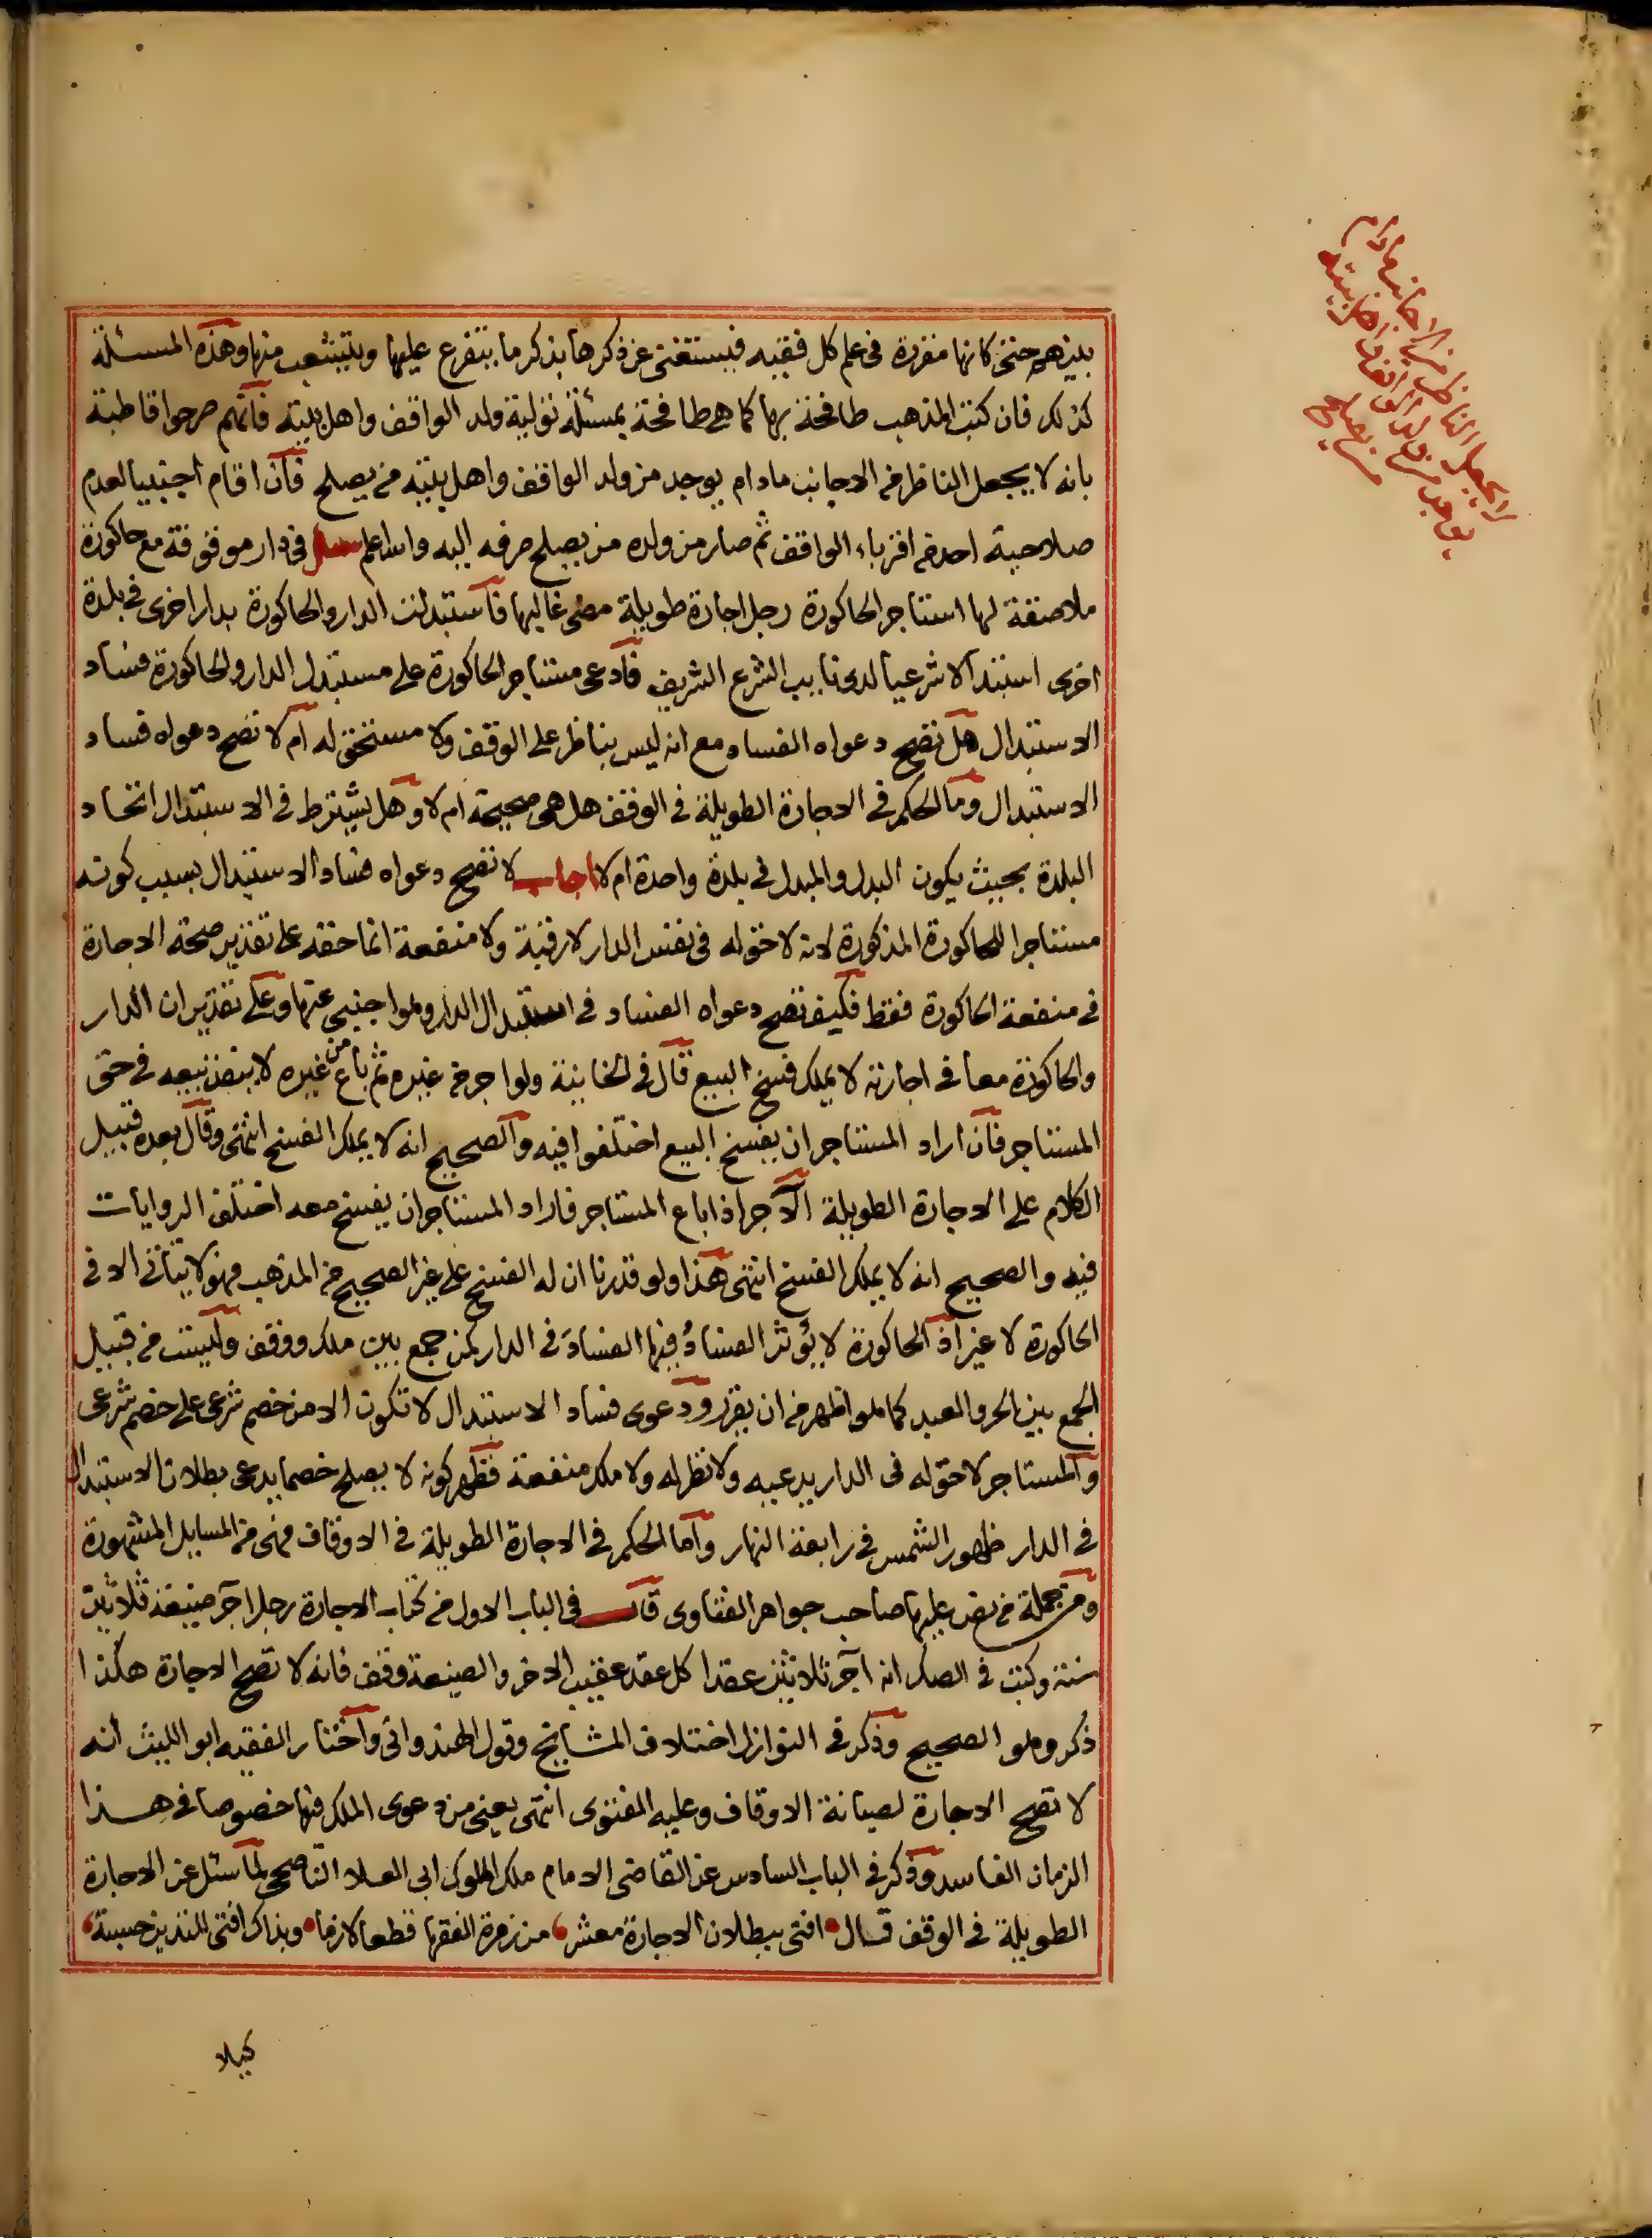 بينهم حتى كانها مقررة في علم كل فقيه فيستغنى عن ذكرها بذكر ما يتفرع عليها ويتشعب منها وهذه المسئلة
كذلك فان كتب المذهب طافحة بها كما هى طافحة بمسئلة تولية ولد الواقف واهل بيته فانهم صرحوا قاطبة
بانه لا يجعل الناظر من الاجانب مادام يوجد من ولد الواقف واهل بيته من يصلح فان اقام اجنبيا لعدم
صلاحية احد من اقرباء الواقف ثم صار من ولده من يصلح صرفه اليه والله اعلم سئل في دار موقوفة مع حاكورة
ملاصقة لها استاجر الحاكورة رجل اجارة طويلة مضى غالبها فاستبدلت الدار والحاكورة بدار اخرى في بلدة
اخرى استبدالا شرعيا لدى نايب الشرع الشريف فادعى مستاجر الحاكورة على مستبدل الدار والحاكورة فساد
الاستبدال هل تصح دعواه الفساد مع انه ليس بناظر على الوقف ولا مستحق له ام لا تصح دعواه فساد
الاستبدال وما الحكم في الاجارة الطويلة في الوقف هل هى صحيحة ام لا وهل يشترط في الاستبدال اتحاد
البلدة بحيث يكون البدل والمبدل في بلدة واحدة ام لا اجاب لا تصح دعواه فساد الاستبدال بسبب كونه
مستاجرا للحاكورة المذكورة لانه لا حق له في نفس الدار لا رقبة ولا منفعة انما حقه على تقدير صحة الاجارة
في منفعة الحاكورة فقط فكيف تصح دعواه الفساد في استبدال الدار وهو اجنبى عنها وعلى تقدير ان الدار
والحاكورة معا في اجارته لا يملك فسخ البيع قال في الخانية ولو اجر من غيره ثم باع من غيره لا ينفذ بيعه في حق
المستاجر فان اراد المستاجر ان يفسخ البيع اختلفوا فيه والصحيح انه لا يملك الفسخ انتهى وقال بعده قبيل
الكلام على الاجارة الطويلة الآجر اذا باع المستاجر فاراد المستاجر ان يفسخ معه اختلف الروايات
فيه والصحيح انه لا يملك الفسخ انتهى هذا ولو قدرنا ان له الفسخ على غير الصحيح من المذهب فهو لا يتاتى الا في
الحاكورة لا غير اذ الحاكورة لا يؤثر الفسادُ فيها الفسادَ في الدار كمن جمع بين ملك ووقف وليست من قبيل
الجمع بين الحر والعبد كما هو اظهر من ان يقرر ودعوى فساد الاستبدال لا تكون الا من خصم شرعى على خصم شرعى
والمستاجر لا حق له في الدار يدعيه ولا نظر له ولا ملك منفعة فظهر كونه لا يصلح خصما يدعى بطلان الاستبدال
في الدار ظهور الشمس في رابعة النهار واما الحكم في الاجارة الطويلة في الاوقاف فهى من المسايل المشهورة
ومن جملة من نص عليها صاحب جواهر الفتاوى قال في الباب الاول من كتاب الاجارة رجل آجر ضيعة ثلاثين
سنة وكتب في الصك انه آجر ثلاثين عقدا كل عقد عقيب الاخر والضيعة وقف فانه لا تصح الاجارة هكذا
ذُكر وهو الصحيح وذكر في النوازل اختلاف المشايخ وقول الهندوانى واختار الفقيه ابو الليث انه
لا تصح الاجارة لصيانة الاوقاف وعليه الفتوى انتهى يعنى من دعوى الملك فيها خصوصا في هذا
الزمان الفاسد وذكر في الباب السادس عن القاضى الامام ملك الملوك ابى العلاء الناصحى لما سئل عن الاجارة
الطويلة في الوقف قال افتى ببطلان الاجارة معشر من زمرة الفقها قطعا لازما وبذاك افتى للتدين حسبة
كيلا
لا يجعل الناظر من الاجانب مادام
يوجد من ولد الواقف واهل بيته
من يصلح